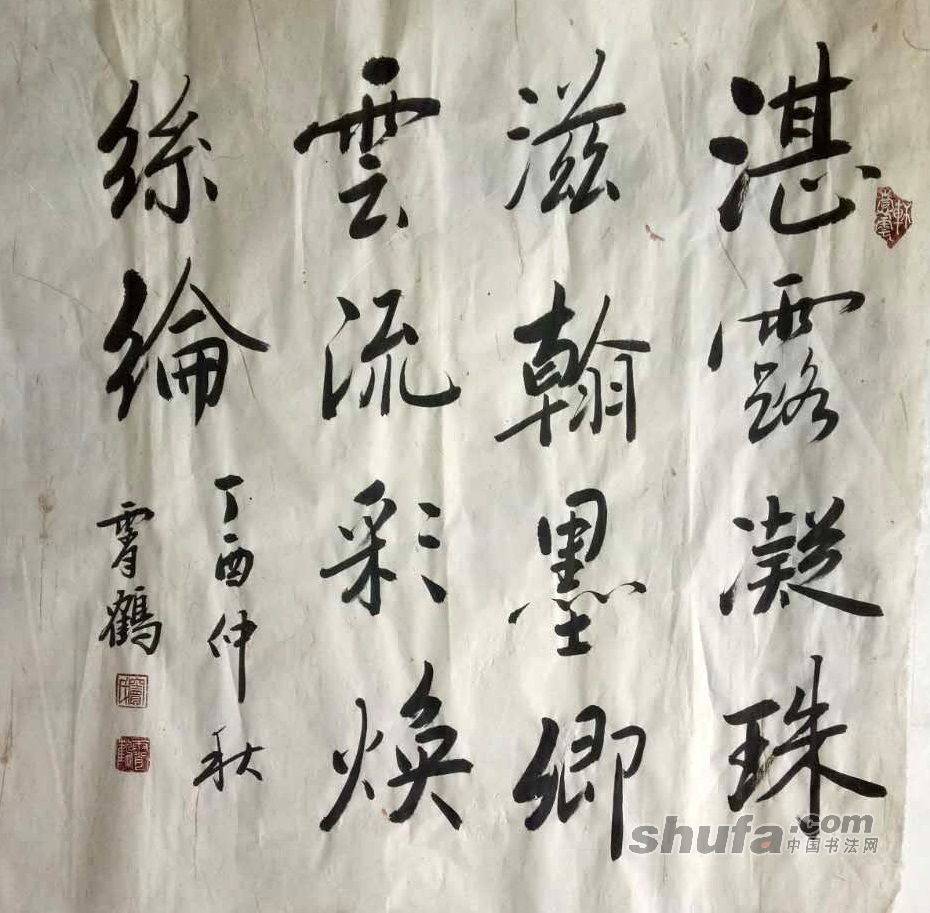 湛露凝珠
滋翰墨卿
雲流彩焕
絲綸
丁酉仲秋
霄鶴
shufa.com
中国书法网